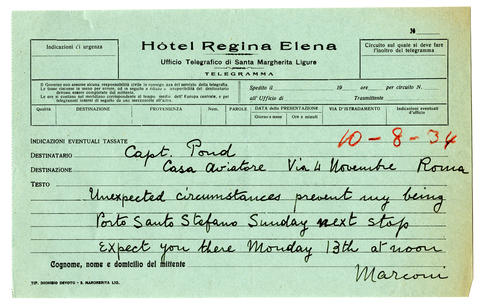 N
Indicazioni d'urgenza
Hôtel Regina Elena
Ufficio Telegrafico di Santa Margherita Ligure
TELEGRAMMA
Circuito sul quale si deve fare
l'inoltro del telegramma
Il Governo non assume alcuna responsabilità civile in conseguenza del servizio della telegrafia.
Spedito il 19 ore per circuito N.
all'Ufficio di Trasmittente
Qualità
DESTINAZIONE
PROVENIENZA
NUM.
PAROLE
DATA della PRESENTAZIONE
Giorno e mese
Ore e minuti
VIA D'ISTRADAMENTO
Indicazioni eventuali
d'ufficio
INDICAZIONI EVENTUALI TASSATE
10-8-34
DESTINATARIO Capt. Pond
DESTINAZIONE Casa Aviatore Via 4 Novembre Roma
TESTO Unexpected circumstances prevent my being
Porto Santo Stefano Sunday next stop
Expect you there Monday 13th at noon
Cognome, nome e domicilio del mittente Marconi
TIP. DIONISIO DEVOTO - S. MARGHERITA LIG.